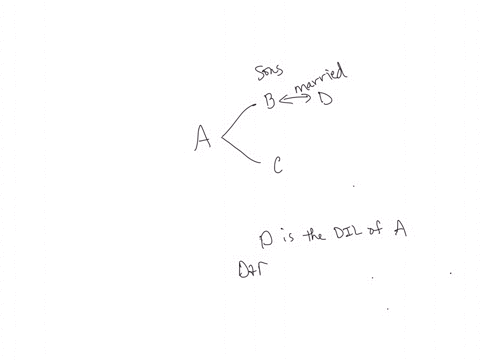 Sons
married
B D
A
C
D is the DIL of A